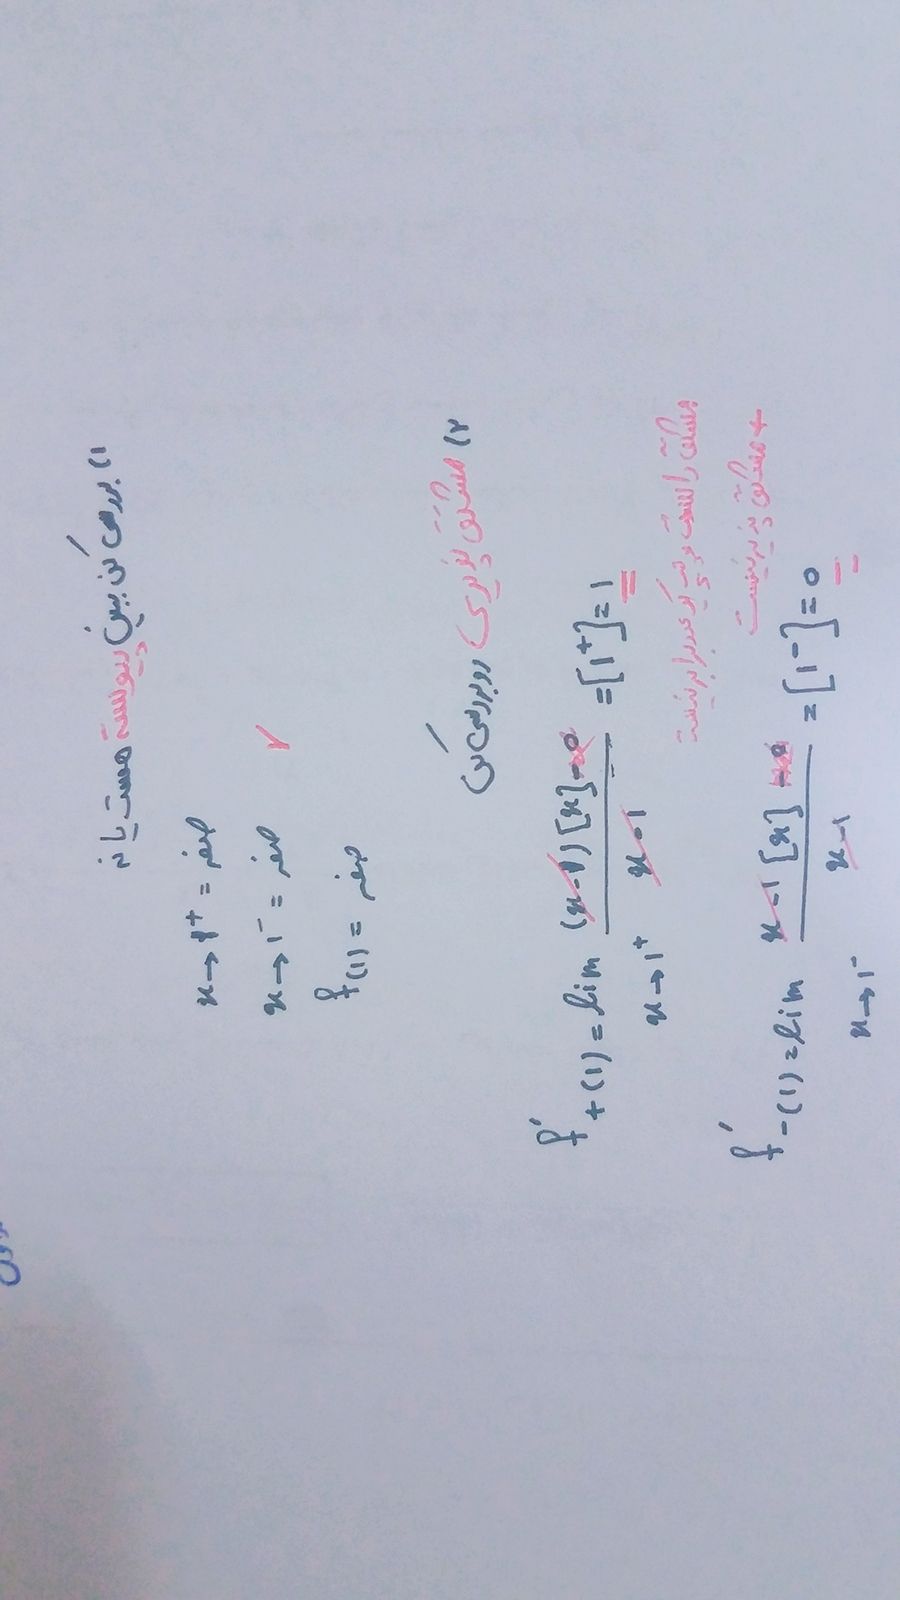 ۱) بررسی کن ببین پیوسته هست یا نه
x→1⁺ = صفر
x→1⁻ = صفر ✓
f(1) = صفر
۲) مشتق پذیری رو بررسی کن
f'₊(1) = lim x→1⁺ (x-1)[x]-0 / x-1 = [1⁺] = 1
مشتق راست و چپ یه عدد برابر نیست
f'₋(1) = lim x→1⁻ x-1[x]-0 / x-1 = [1⁻] = 0
+ مشتق پذیر نیست